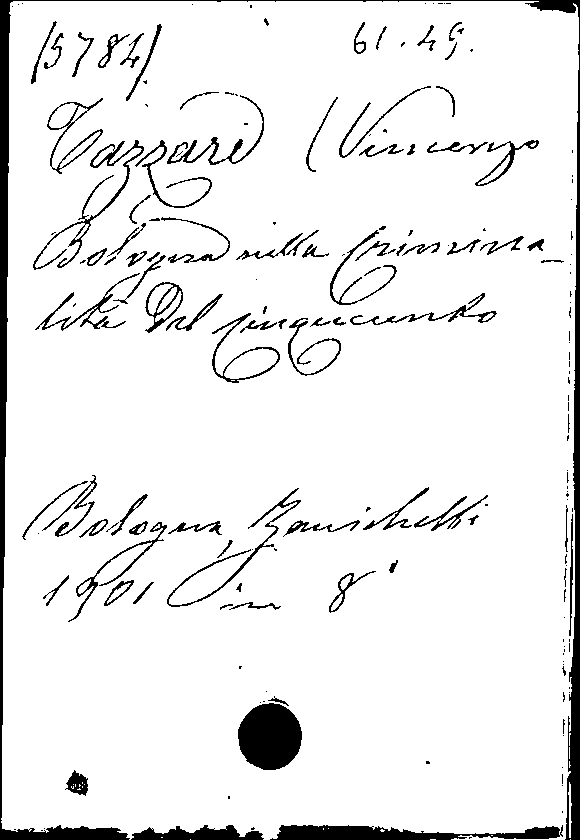 (5784) 61.49.
Tazzari (Vincenzo
Bologna nella crimina-
lità del cinquecento
Bologna, Zanichelli
1901 in 8°